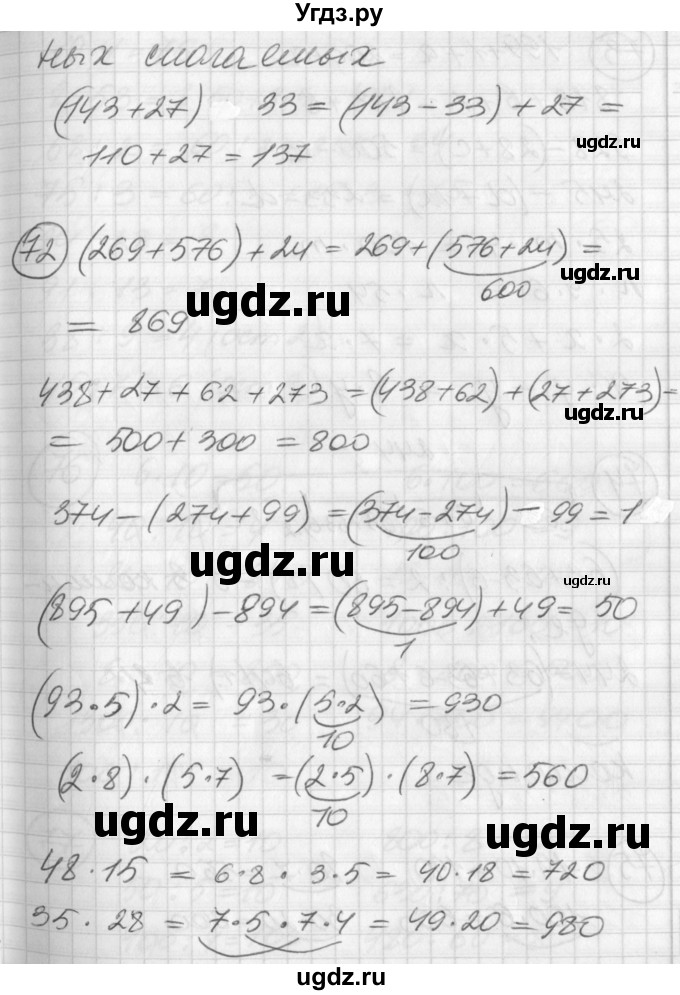 Угдз.ру
ных слагаемых
(143+27) 33 = (143-33) + 27 =
110+27 = 137
ugdz.ru
72 (269+576)+24 = 269+(576+24) =
600
ugdz.ru
ugdz.ru
= 869
438+27+62+273 = (438+62)+(27+273)=
ugdz.ru
= 500+300 = 800
374-(274+99) = (374-274)-99=1
100
ugdz.ru
ugdz.ru
(895+49)-894=(895-894)+49= 50
1
(93·5)·2= 93·(5·2) =930
10
(2·8)·(5·7) =(2·5)·(8·7) =560
10
ugdz.ru
ugdz.ru
48·15 = 6·8·3·5= 40·18=720
35·28 = 7·5·7·4 = 49·20=980
ugdz.ru
ugdz.ru